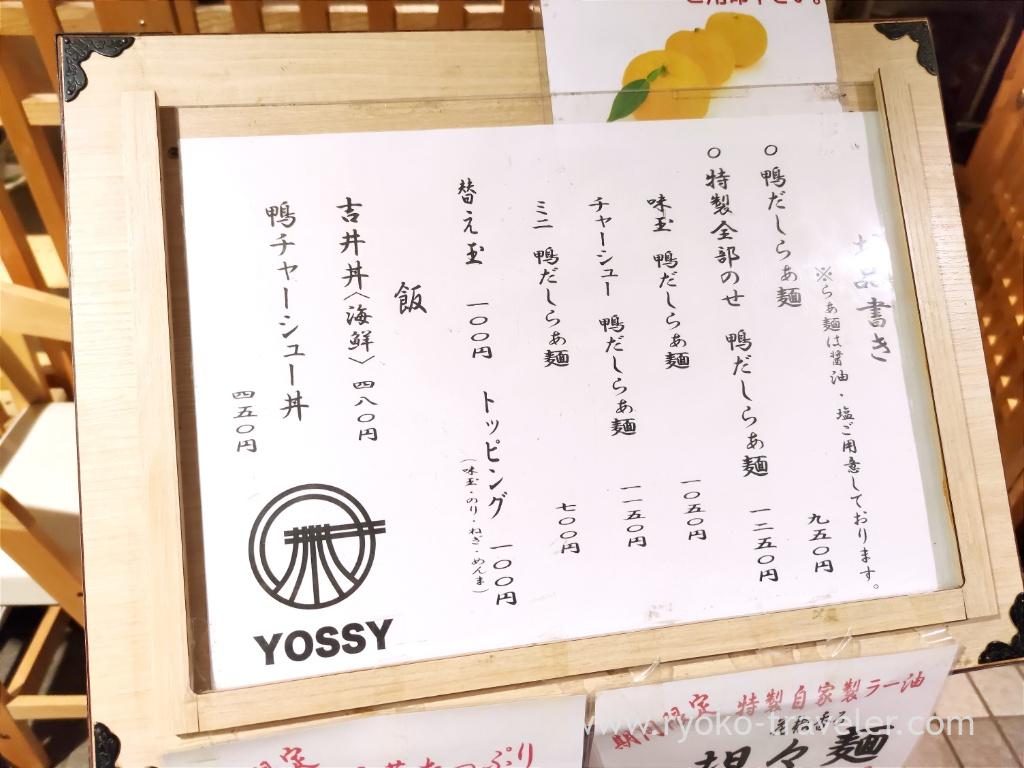 ご用命下さい。
お品書き
※らぁ麺は醤油・塩ご用意しております。
○鴨だしらぁ麺 九五〇円
○特製全部のせ 鴨だしらぁ麺 一二五〇円
味玉 鴨だしらぁ麺 一〇五〇円
チャーシュー 鴨だしらぁ麺 一一五〇円
ミニ 鴨だしらぁ麺 七〇〇円
替え玉 一〇〇円
トッピング 一〇〇円
(味玉・のり・ねぎ・めんま)
飯
吉井丼〈海鮮〉 四八〇円
鴨チャーシュー丼 四五〇円
YOSSY
期間限定
特製自家製ラー油
担々麺
定
たっぷり
www.ryoko-traveler.com